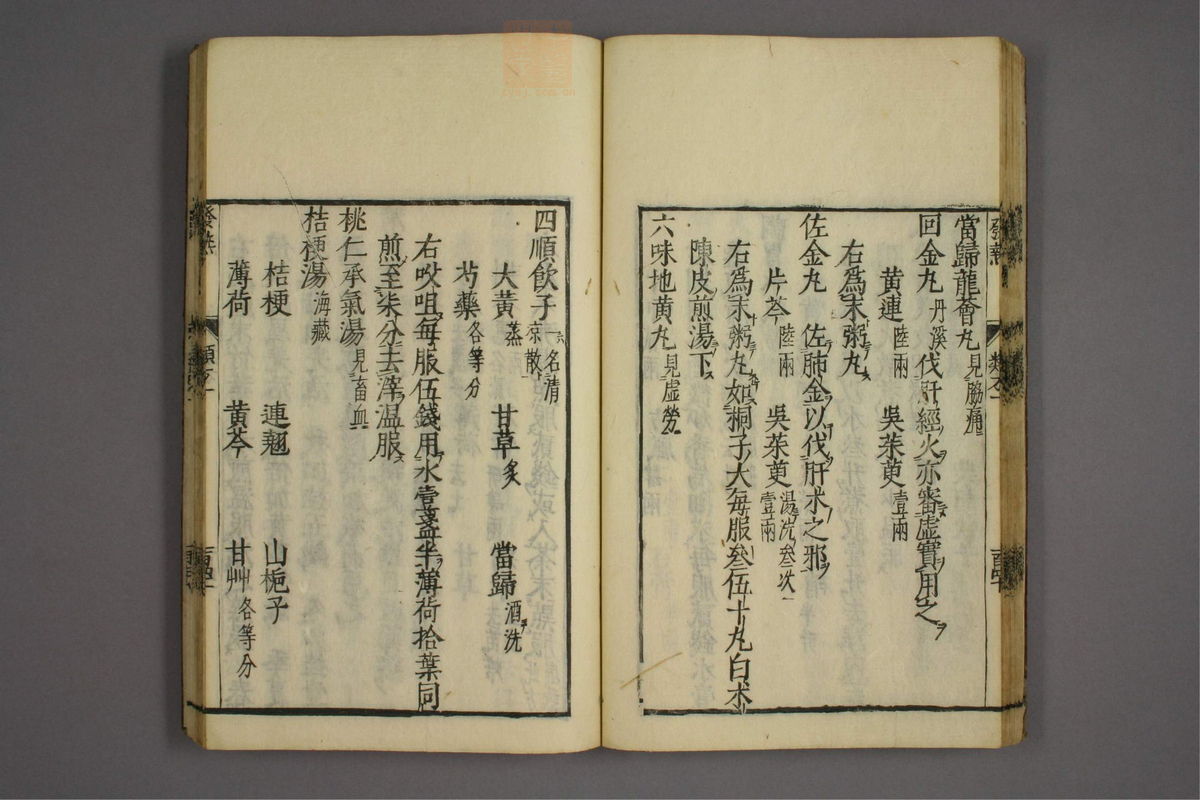 當歸龍薈丸見脇痛
回金丸丹溪伐肝經火亦審虛實用之
黄連陸兩 吳茱萸壹兩
右爲末粥丸
佐金丸 佐肺金以伐肝木之邪
片芩陸兩 吳茱萸湯洗叁次壹兩
右爲末粥丸如桐子大每服叁伍十丸白朮
陳皮煎湯下
六味地黄丸見虛勞
四順飲子一名清凉散
大黄蒸 甘草炙 當歸酒洗
芍藥各等分
右㕮咀每服伍錢用水壹盞半薄荷拾葉同
煎至柒分去滓温服
桃仁承氣湯見畜血
桔梗湯海藏
桔梗 連翹 山梔子
薄荷 黄芩 甘艸各等分